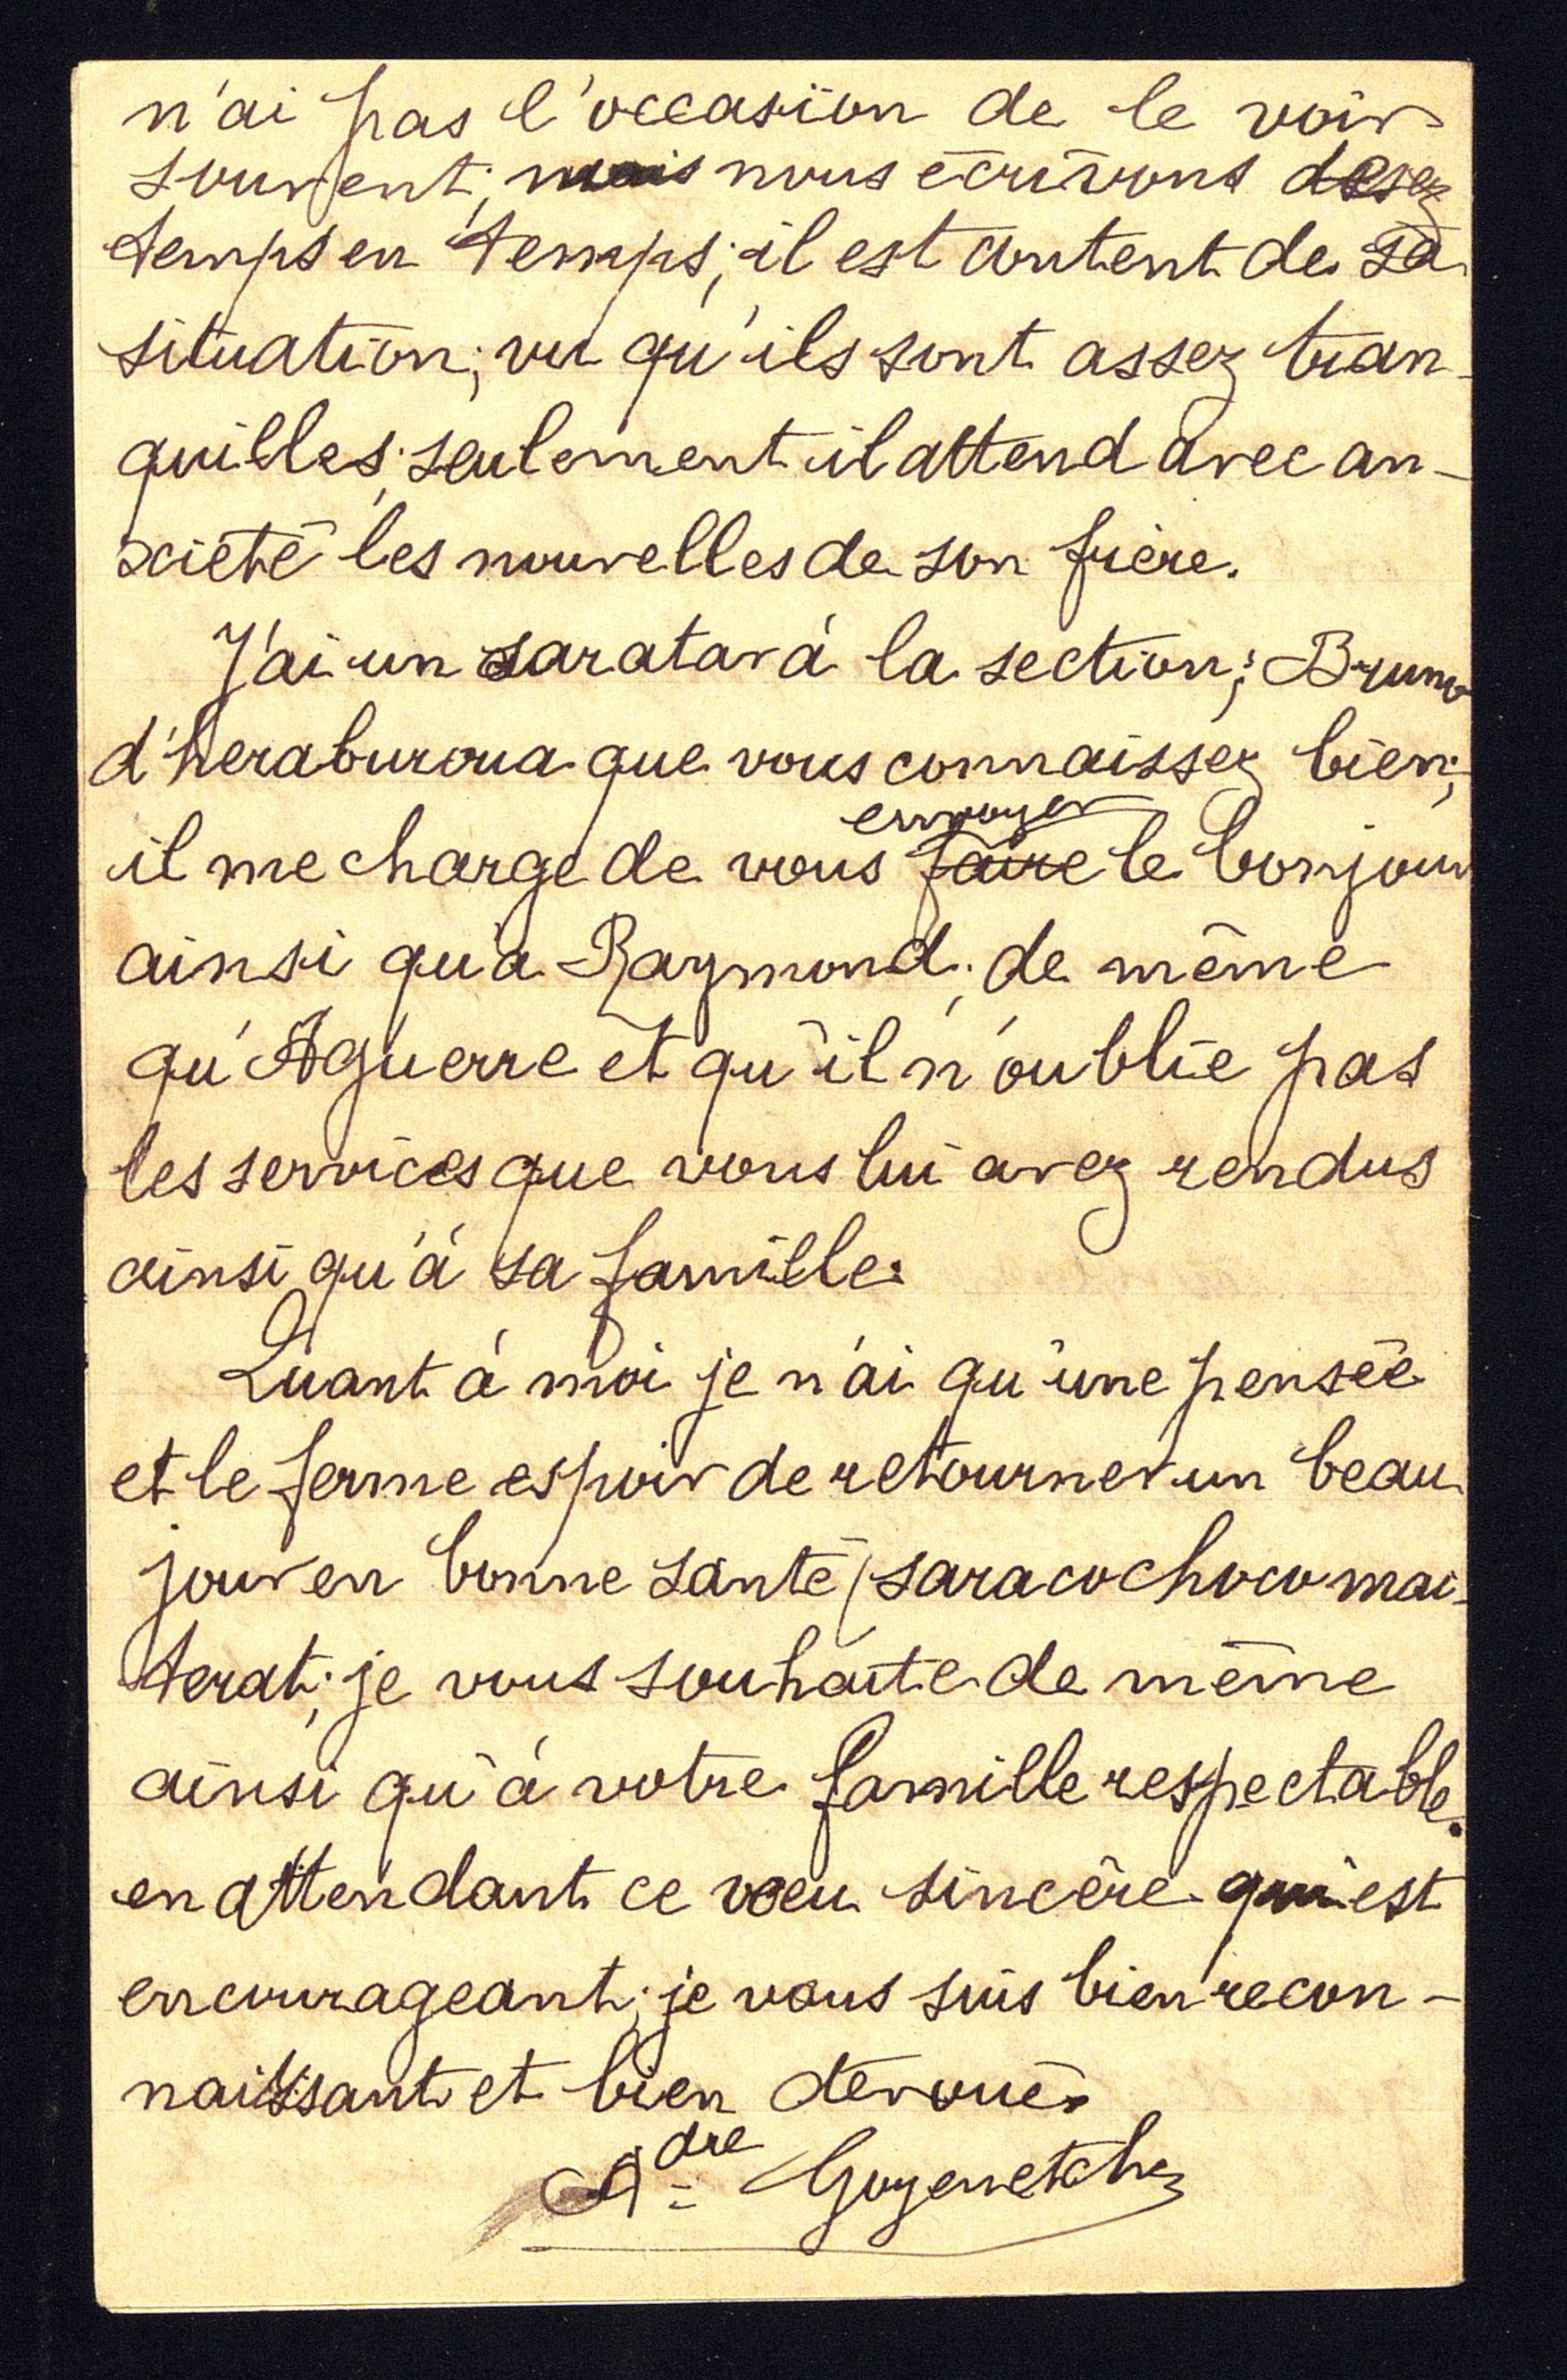 n'ai pas l'occasion de le voir
souvent; mais nous écrivons de
temps en temps; il est content de sa
situation; vu qu'ils sont assez tran-
quilles; seulement il attend avec an-
xiété les nouvelles de son frère.
J'ai un saratar à la section; Bruno
d'heraburoua que vous connaissez bien;
envoyer
il me charge de vous faire le bonjour
ainsi qu'a Raymond; de même
qu'Aguerre et qu'il n'oublie pas
les services que vous lui avez rendus
ainsi qu'à sa famille.
Quant à moi je n'ai qu'une pensée
et le ferme espoir de retourner un beau
jour en bonne santé (saracochoco mai-
terat; je vous souhaite de même
ainsi qu'à votre famille respectable.
en attendant ce voeu sincère qui est
encourageant; je vous suis bien recon-
naissant et bien dévoué.
Adre Goyenetche